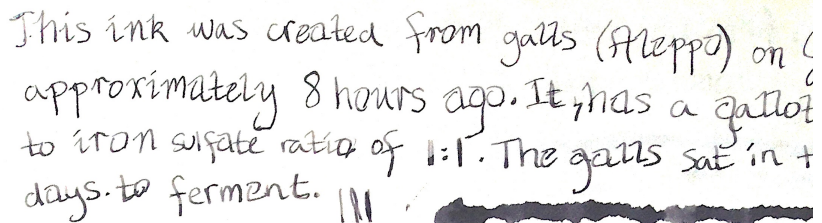 This ink was created from galls (Aleppo) on
approximately 8 hours ago. It, has a gallot
to iron sulfate ratio of 1:1. The galls sat in
days. to ferment.